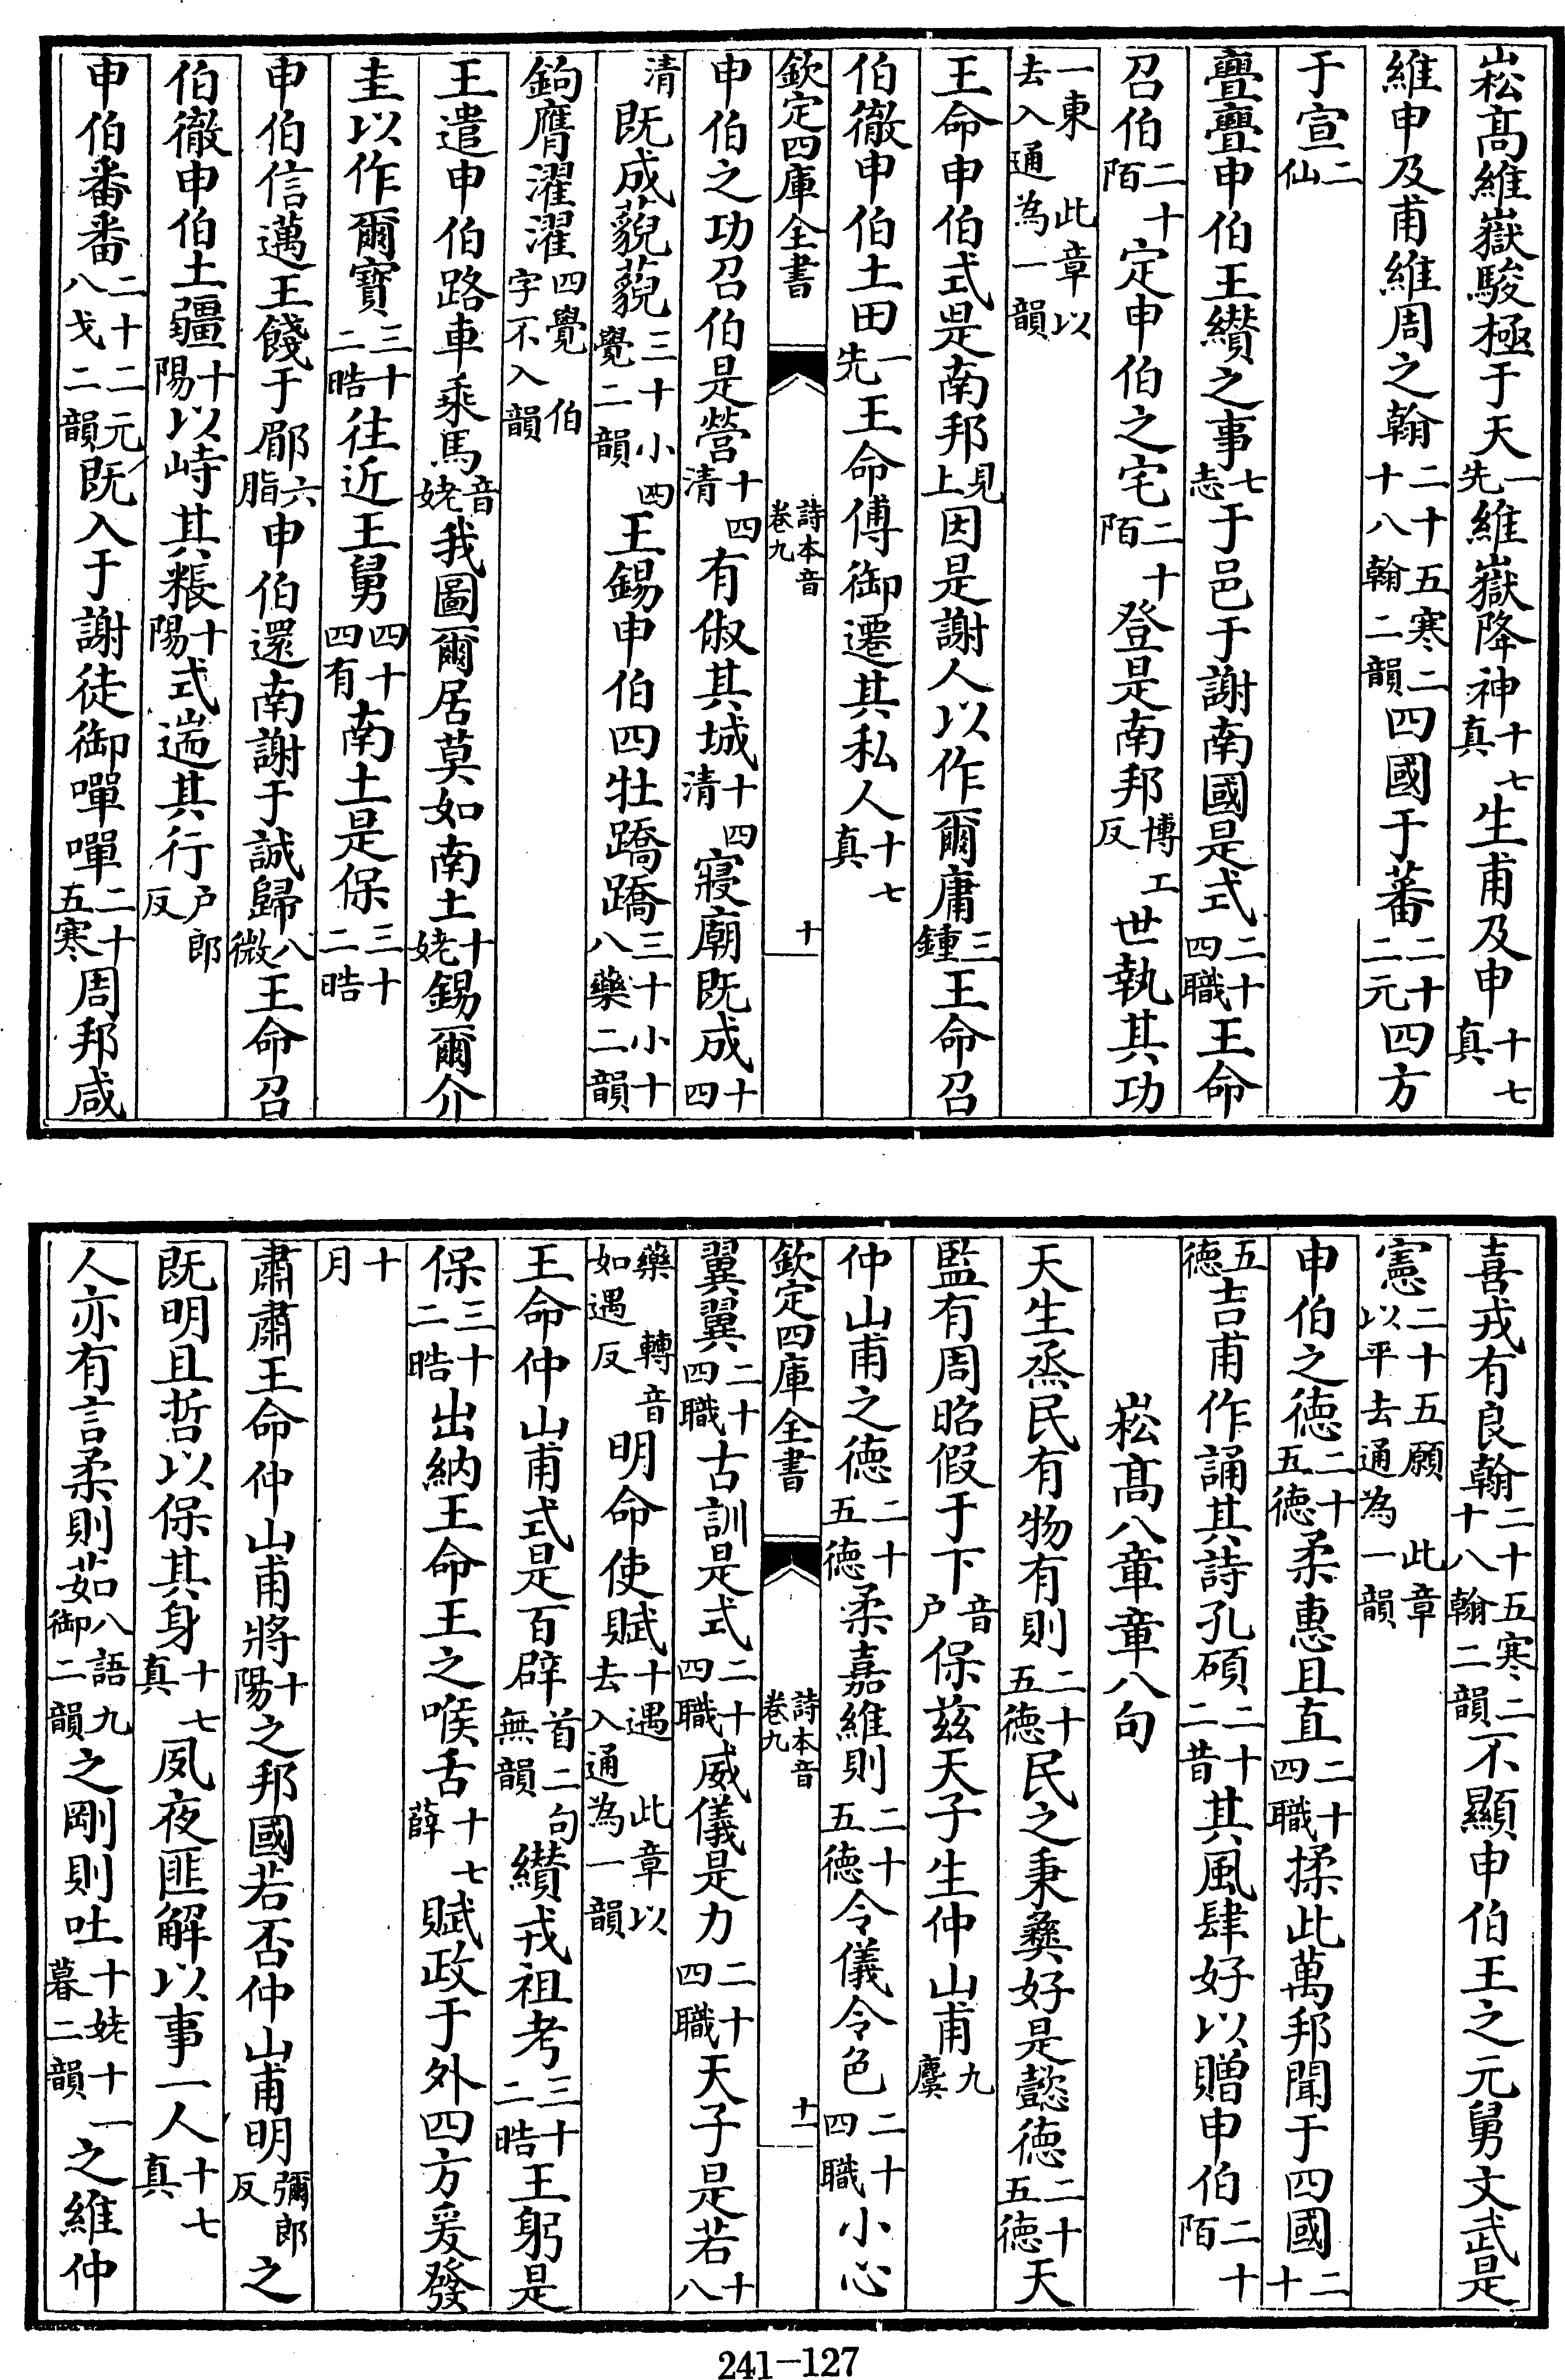 崧高維嶽駿極于天一先維嶽降神十七真生甫及申十七真
維申及甫維周之翰二十五寒二十八翰二韻四國于蕃二十二元四方
于宣二仙
亹亹申伯王纘之事七志于邑于謝南國是式二十四職王命
召伯二十陌定申伯之宅二十陌登是南邦博工反世執其功
一東此章以去入通為一韻
王命申伯式是南邦見上因是謝人以作爾庸三鍾王命召
伯徹申伯土田一先王命傅御遷其私人十七真
欽定四庫全書 詩本音卷九 十
申伯之功召伯是營十四清有俶其城十四清寢廟既成十四
清既成藐藐三十小四覺二韻王錫申伯四牡蹻蹻三十小十八藥二韻
鉤膺濯濯四覺伯字不入韻
王遣申伯路車乘馬音姥我圖爾居莫如南土十姥錫爾介
圭以作爾寶三十二晧往近王舅四十四有南土是保三十二晧
申伯信邁王餞于郿六脂申伯還南謝于誠歸八微王命召
伯徹申伯土疆十陽以峙其粻十陽式遄其行户郎反
申伯番番二十二元八戈二韻既入于謝徒御嘽嘽二十五寒周邦咸
喜戎有良翰二十五寒二十八翰二韻不顯申伯王之元舅文武是
憲二十五願此章以平去通為一韻
申伯之德二十五德柔惠且直二十四職揉此萬邦聞于四國二十
五德吉甫作誦其詩孔碩二十二昔其風肆好以贈申伯二十陌
崧高八章章八句
天生烝民有物有則二十五德民之秉彝好是懿德二十五德天
監有周昭假于下音户保兹天子生仲山甫九麌
仲山甫之德二十五德柔嘉維則二十五德令儀令色二十四職小心
欽定四庫全書 詩本音卷九 十一
翼翼二十四職古訓是式二十四職威儀是力二十四職天子是若十八
藥轉音如遇反明命使賦十遇此章以去入通為一韻
王命仲山甫式是百辟首二句無韻纘戎祖考三十二晧王躬是
保三十二晧出納王命王之喉舌十七薛賦政于外四方爰發
十月
肅肅王命仲山甫將十陽之邦國若否仲山甫明彌郎反之
既明且哲以保其身十七真夙夜匪解以事一人十七真
人亦有言柔則茹八語九御二韻之剛則吐十姥十一暮二韻之維仲
241-127